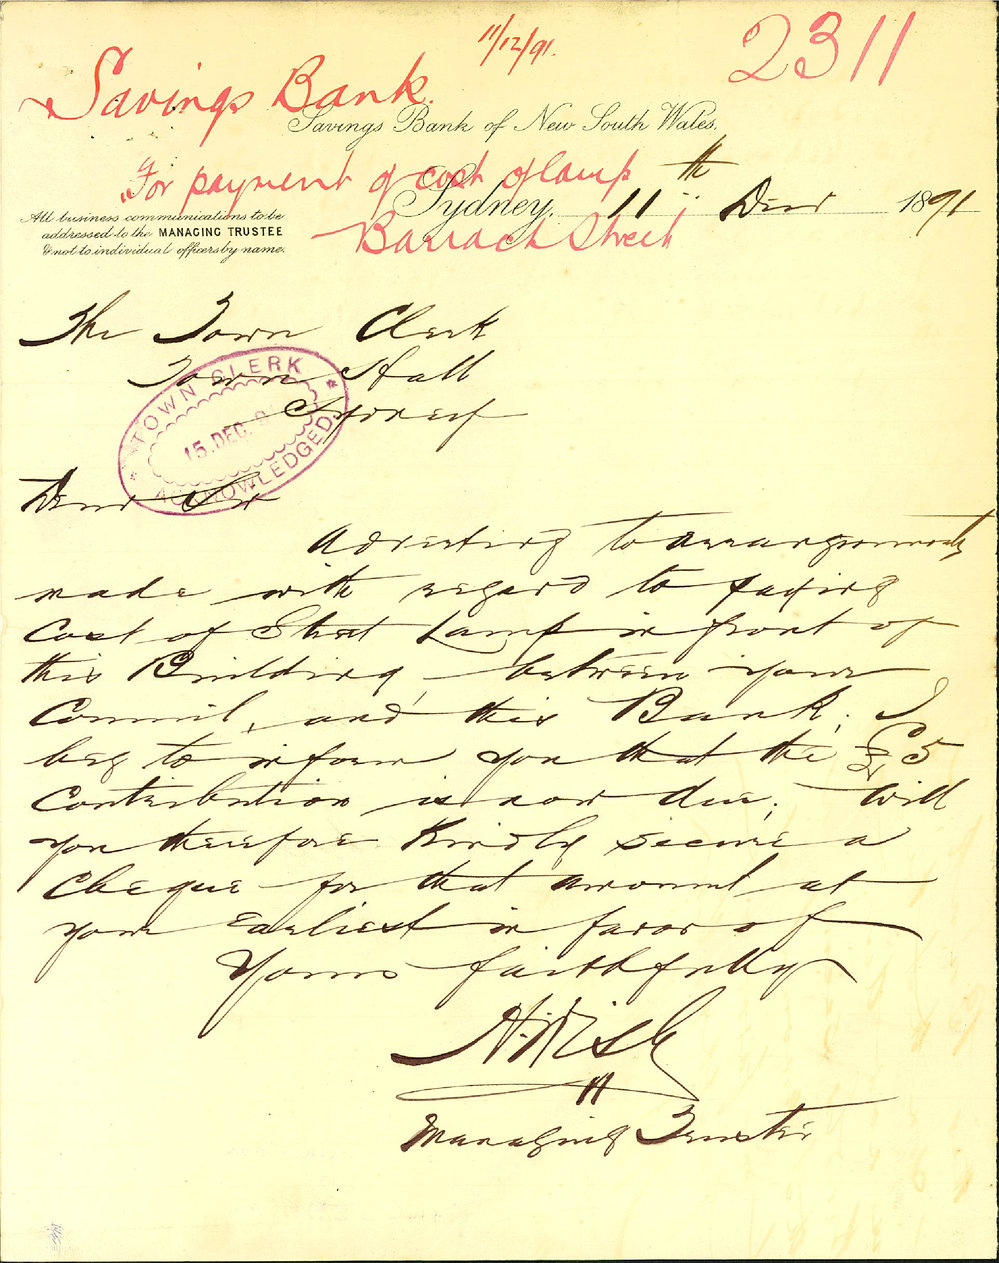 11/12/91.
2311
Savings Bank.
Savings Bank of New South Wales.
For payment of cost of lamp
Barrack Street
Sydney, 11th Decr 1891
All business communications to be
addressed to the MANAGING TRUSTEE
& not to individual officers by name.
The Town Clerk
Town Hall
Sydney
TOWN CLERK
15. DEC. 9
ACKNOWLEDGED
Dear Sir
Adverting to arrangements
made with regard to
Cost of Street Lamp in front of
this Building, between your
Council, and this Bank; I
beg to inform you that the £5
Contribution is now due; Will
you therefore Kindly secure a
Cheque for that amount at
your Earliest in favor of
Yours faithfully
Managing Trustee